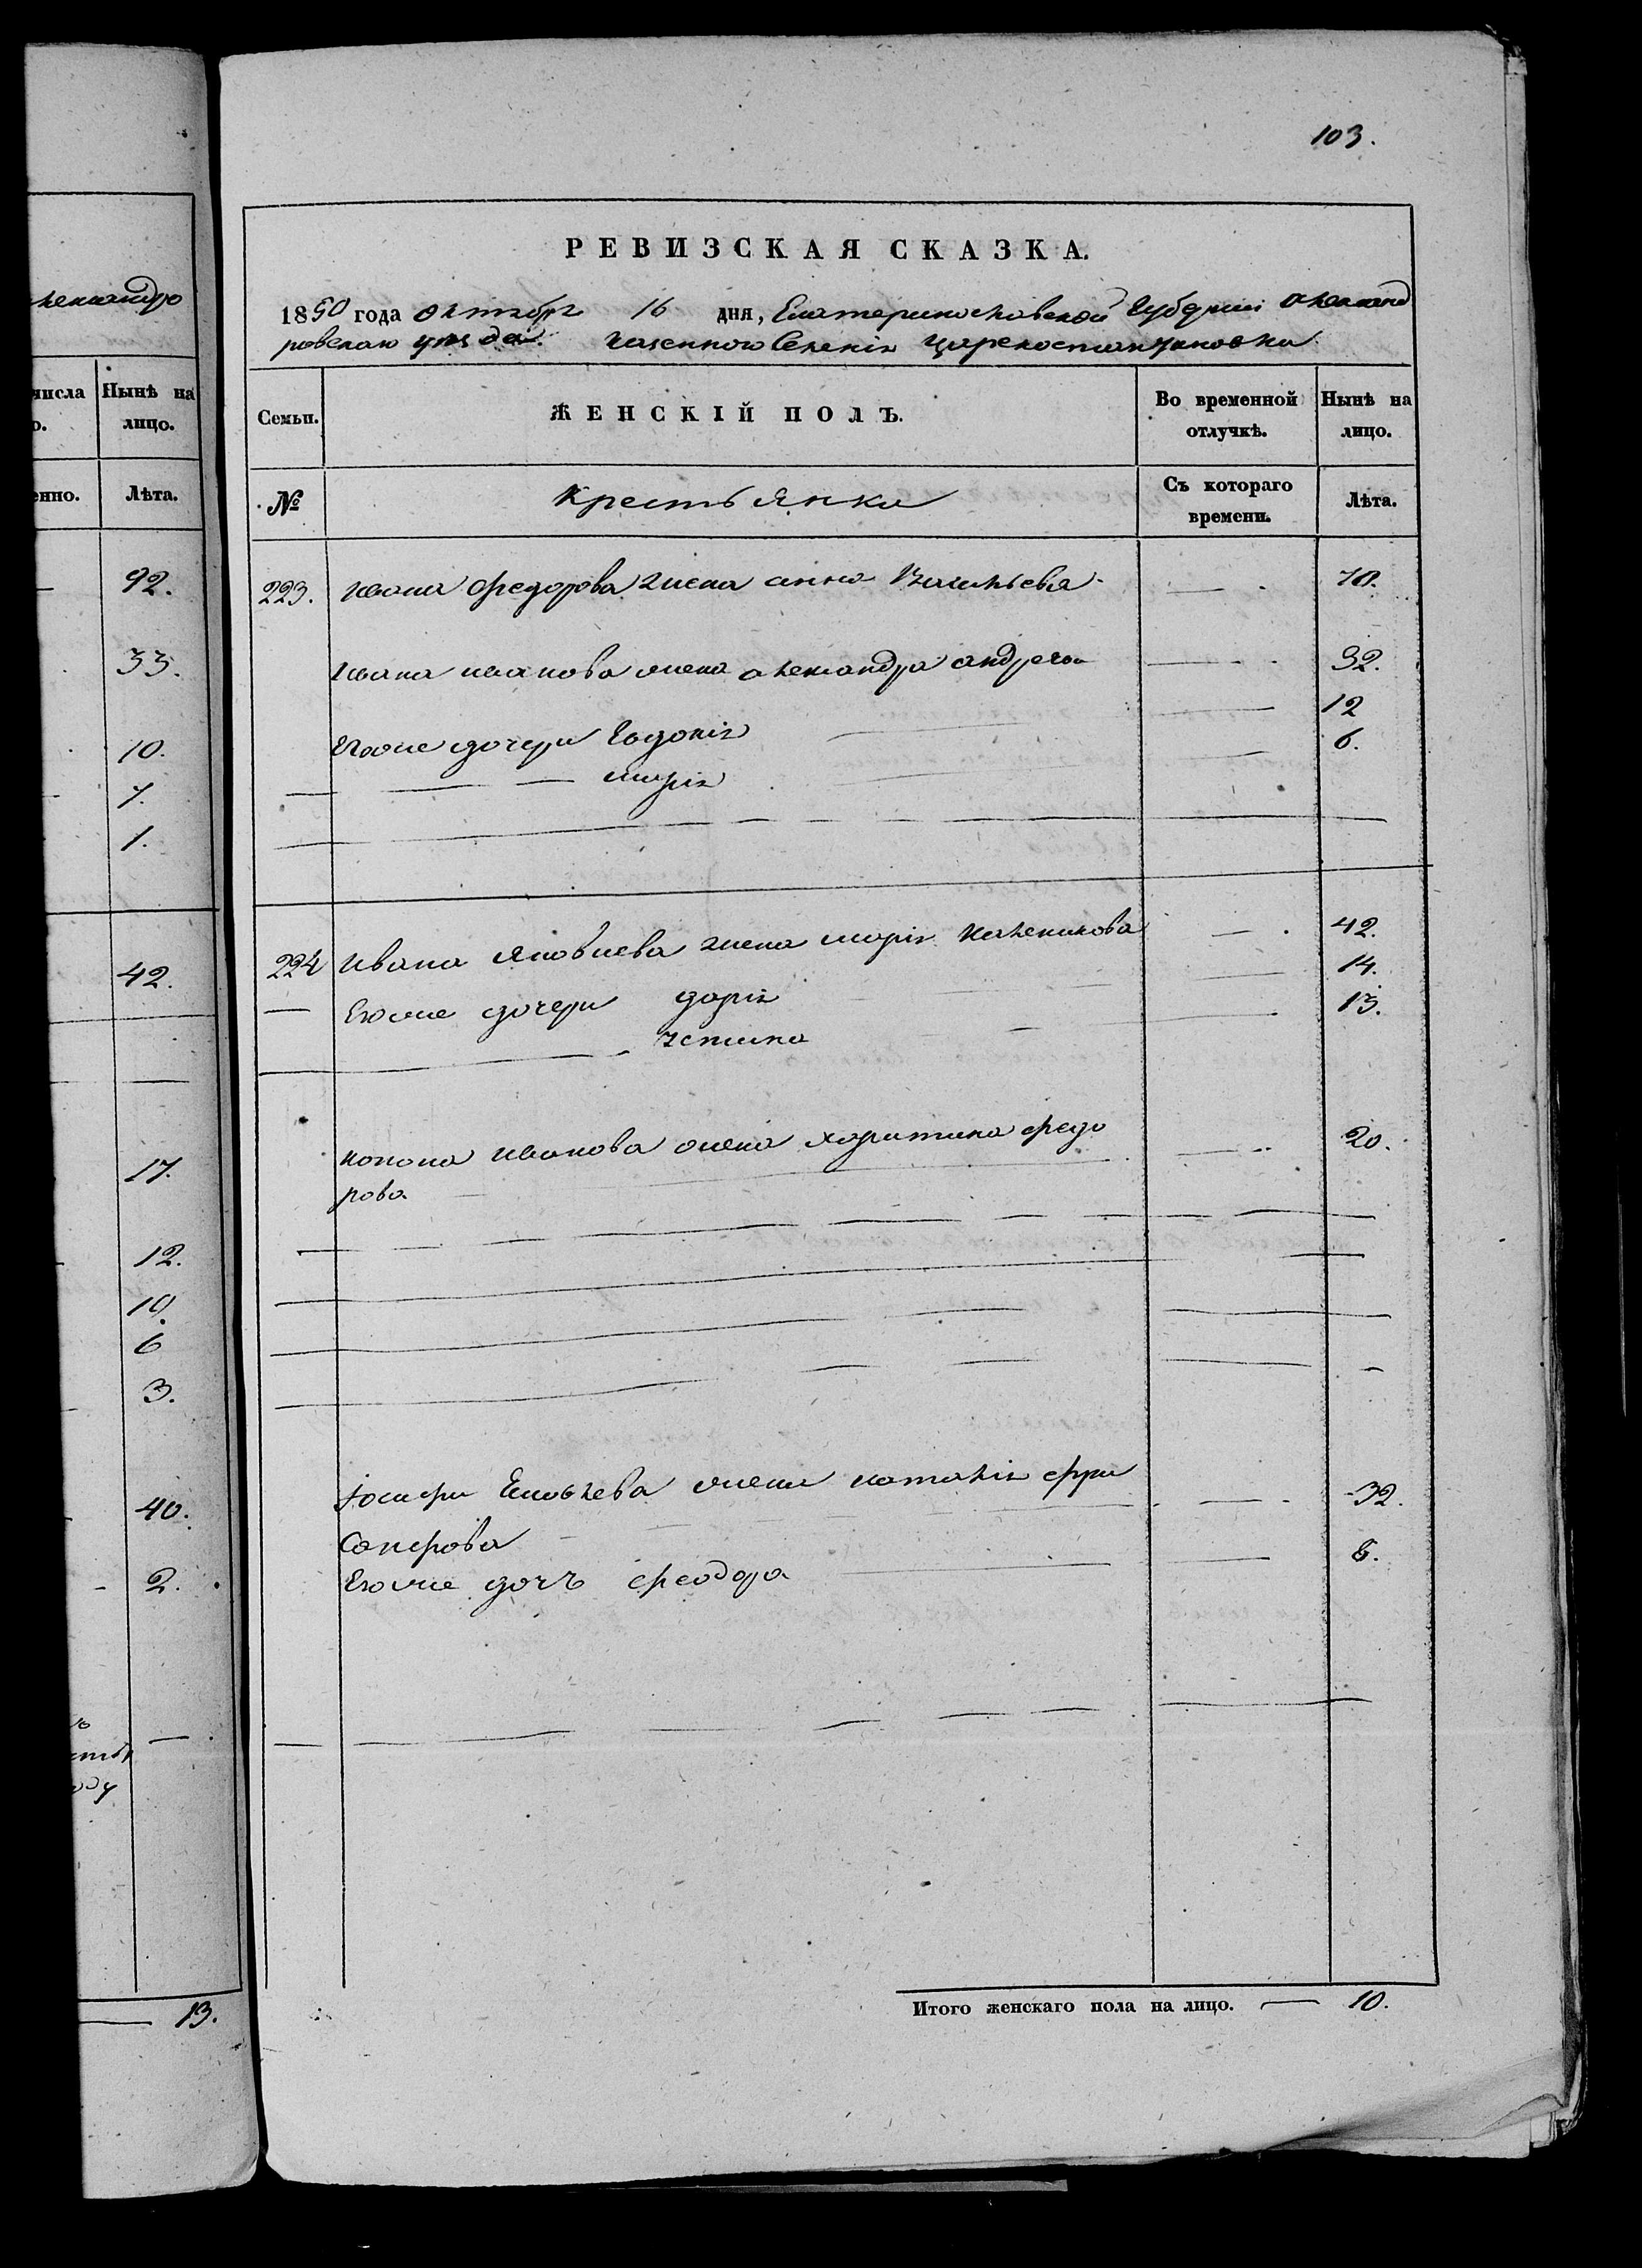 103.
РЕВИЗСКАЯ СКАЗКА.
1850 года октября 16 дня, Екатеринославской Губерніи Александ
ровскаго уезда казенного Селенія Цареконстантиновки
Семьи.
ЖЕНСКІЙ ПОЛЪ.
Во временной отлучкѣ.
Нынѣ на лицо.
№
Крестьянки
Съ котораго времени.
Лѣта.
223. Ивана Федорова жена анна Васильева 70.
Ивана иванова жена александра андреева 32.
12
Егоже дочери Евдокія 6.
марія
224 Ивана Яковлева жена марія каленикова 42.
Егоже дочери дарія 14.
устина 13.
конона иванова жена харитина федо 20.
рова
Іосифа Яковлева жена наталія 32.
Егоже дочь феодора 8.
Итого женскаго пола на лицо. 10.
александро
числа
Нынѣ на лицо.
Лѣта.
92.
33.
10.
7.
1.
42.
17.
12.
10.
6
3.
40.
2.
13.